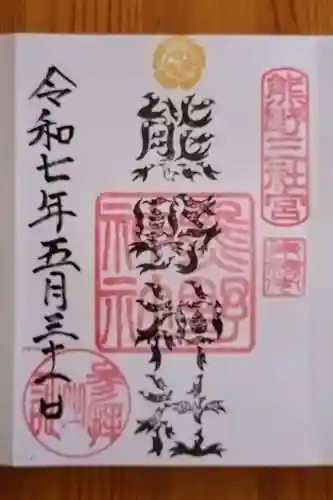 熊野三社宮
熊野神社
熊野
神社
令和七年五月三十一日